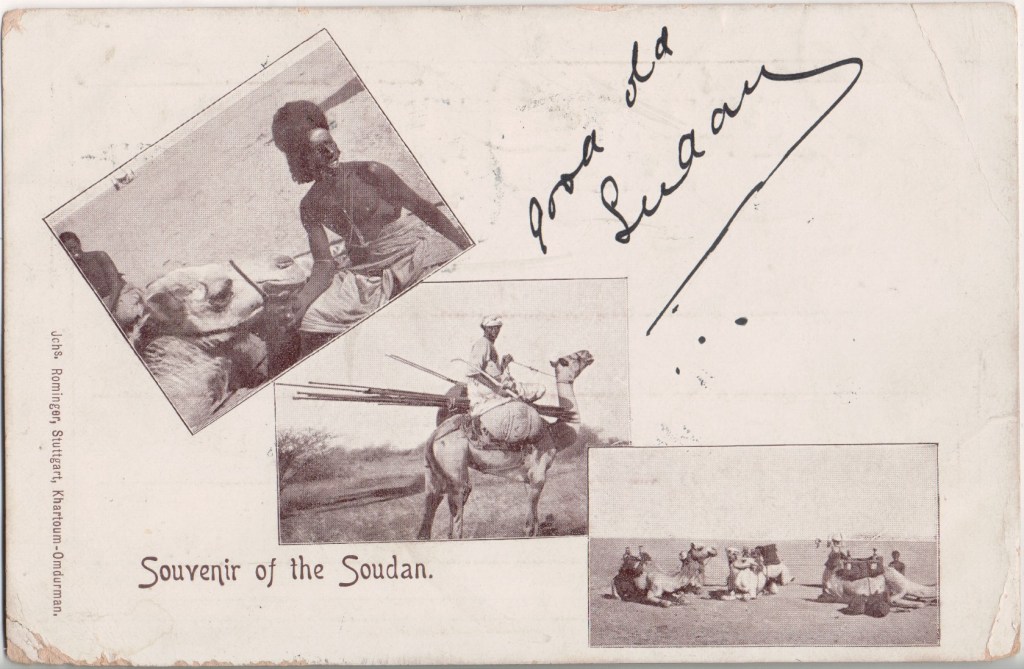 good old
Sudan
Souvenir of the Soudan.
Jchs. Rominger, Stuttgart, Khartoum-Omdurman.